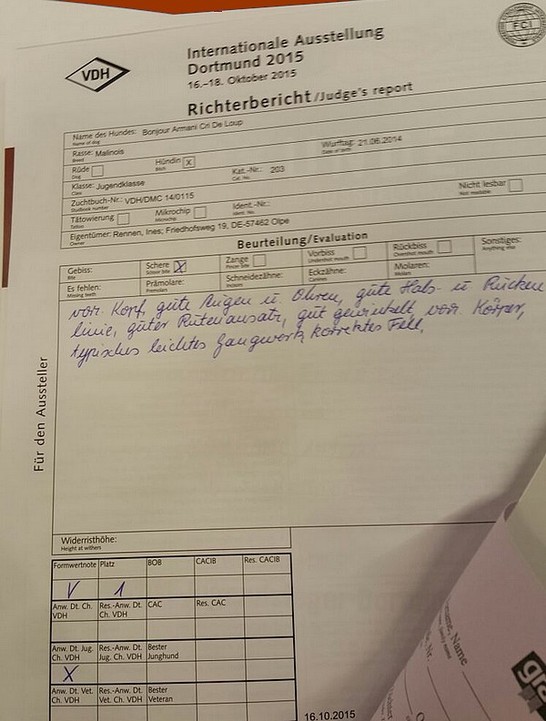 VDH
Internationale Ausstellung
Dortmund 2015
16.–18. Oktober 2015
FCI
Richterbericht/Judge's report
Name des Hundes: Bonjour Armani Cri De Loup
Name of dog
Rasse: Malinois
Breed
Wurftag: 21.06.2014
Date of birth
Rüde
Dog
Hündin X
Bitch
Kat.-Nr.: 203
Cat. No.
Klasse: Jugendklasse
Class
Zuchtbuch-Nr.: VDH/DMC 14/0115
Studbook number
Nicht lesbar
Not readable
Tätowierung
Tattoo
Mikrochip
Microchip
Ident.-Nr.:
Ident. No.
Eigentümer: Rennen, Ines; Friedhofsweg 19, DE-57462 Olpe
Owner
Beurteilung/Evaluation
Gebiss:
Bite
Schere X
Scissor bite
Zange
Pincer bite
Vorbiss
Undershot mouth
Rückbiss
Overshot mouth
Sonstiges:
Anything else
Es fehlen:
Missing teeth
Prämolare:
Premolars
Schneidezähne:
Incisors
Eckzähne:
Canines
Molaren:
Molars
vorz. Kopf, gute Augen u. Ohren, gute Hals- u. Rücken
linie, guter Rutenansatz, gut gewinkelt, vorz. Körper,
typisches leichtes Gangwerk, korrektes Fell.
Für den Aussteller
Widerristhöhe:
Height at withers
Formwertnote Platz BOB CACIB Res. CACIB
V 1
Anw. Dt. Ch. VDH Res.-Anw. Dt. Ch. VDH CAC Res. CAC
Anw. Dt. Jug. Ch. VDH Res.-Anw. Dt. Jug. Ch. VDH Bester Junghund
X
Anw. Dt. Vet. Ch. VDH Res.-Anw. Dt. Vet. Ch. VDH Bester Veteran
16.10.2015